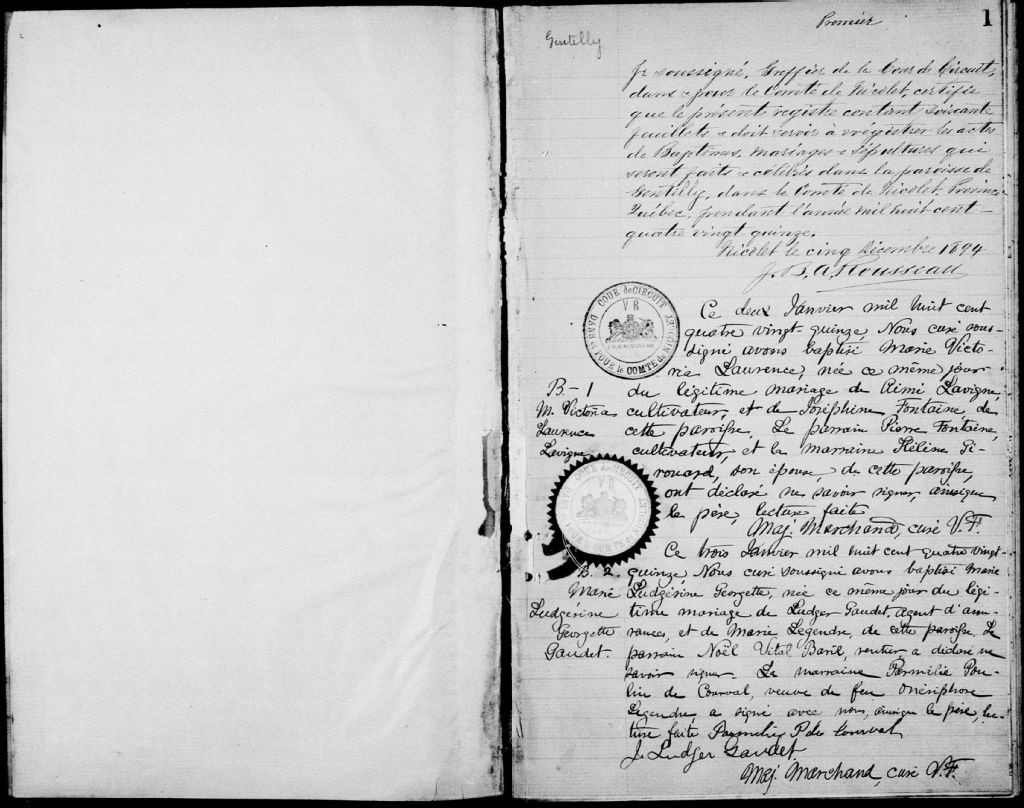 Premier
1
Gentilly
Je soussigné, Greffier de la Cour de Circuit,
dans & pour le Comté de Nicolet, certifie
que le présent registre contient soixante
feuillets & doit servir à enregistrer les actes
de Baptêmes, Mariages & Sépultures qui
seront faits & célébrés dans la paroisse de
Gentilly, dans le Comté de Nicolet Province
Québec, pendant l'année mil huit cent
quatre vingt quinze.
Nicolet le cinq Décembre 1894
J. B. A. Rousseau
COUR de CIRCUIT
DANS et POUR le COMTÉ de NICOLET
V R
Ce deux Janvier mil huit cent
quatre vingt-quinze, Nous curé sous-
signé avons baptisé Marie Victo-
ria Laurence, née ce même jour
B.-1
du légitime mariage de Aimé Lavigne,
M. Victoria
cultivateur, et de Joséphine Fontaine, de
Laurence
cette paroisse. Le parrain Pierre Fontaine,
Lavigne
cultivateur, et la marraine Hélène Gi-
rouard, son épouse, de cette paroisse,
ont déclaré ne savoir signer, ainsique
le père, lecture faite
Maj. Marchand, curé V.F.
COUR de CIRCUIT
V R
Ce trois Janvier mil huit cent quatre vingt-
B. 2.
quinze, Nous curé soussigné avons baptisé Marie
Marie
Ludgérine Georgette, née ce même jour du légi-
Ludgérine
time mariage de Ludger Gaudet, agent d'assu-
Georgette
rances, et de Marie Legendre, de cette paroisse. Le
Gaudet.
parrain Noël Vital Baril, rentier a déclaré ne
savoir signer. La marraine Parmélie Pou-
lin de Courval, veuve de feu Onésiphore
Legendre, a signé avec nous, ainsique le père, lec-
ture faite Parmélie P de Courval
J. Ludger Gaudet
Maj. Marchand, curé V.F.